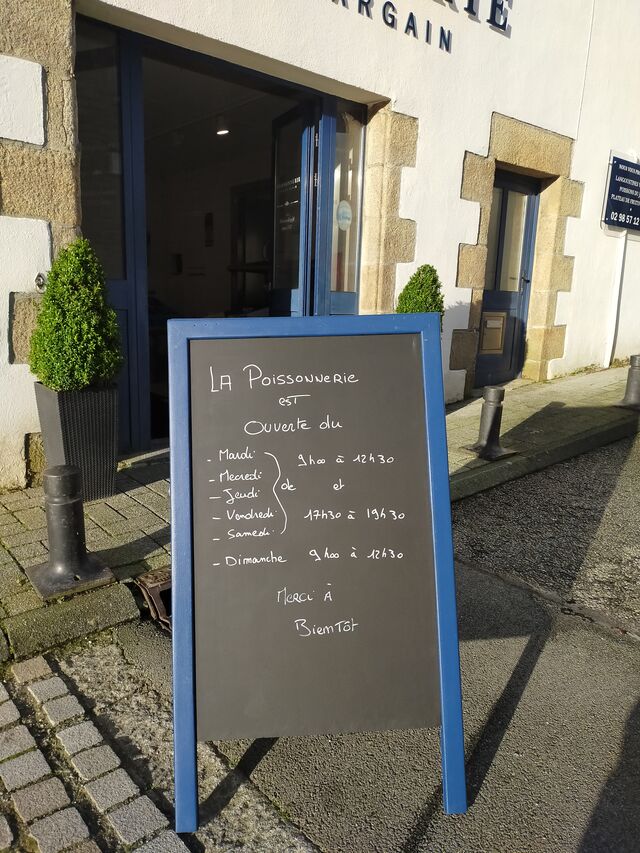 RIE
ARGAIN
NOUS VOUS
LANGOUSTINES
POISSONS
PLATEAU DE FRUITS
02 98 57 12
LA POISSONNERIE
EST
OUVERTE du
- Mardi
- Mecredi
- Jeudi
- Vendredi
- Samedi
de
9h00 à 12h30
et
17h30 à 19h30
- Dimanche 9h00 à 12h30
MERCI À
BIENTÔT